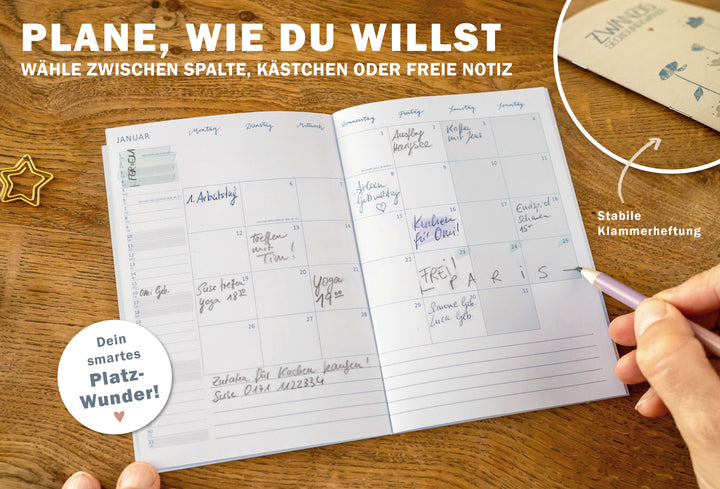 PLANE, WIE DU WILLST
WÄHLE ZWISCHEN SPALTE, KÄSTCHEN ODER FREIE NOTIZ
Stabile
Klammerheftung
JANUAR
Montag
Dienstag
Mittwoch
Donnerstag
Freitag
Samstag
Sonntag
FERIEN
1 2 3 4
Ausflug
Kaffee
mit Jens
5 6 7 8 9 10 11
1. Arbeitstag
Geburtstag
♡
12 13 14 15 16 17 18
Treffen
mit
Tim!
Kuchen
für Omi!
Endspiel
19 20 21 22 23 24 25
Omi Geb.
Suse treffen
Yoga 18³⁰
Yoga
19⁰⁰
FREI
PARIS
26 27 28 29 30 31
Simone Geb.
Luca Geb.
Zutaten für Kuchen kaufen!
Suse 0171 1122334
Dein
smartes
Platz-
Wunder!